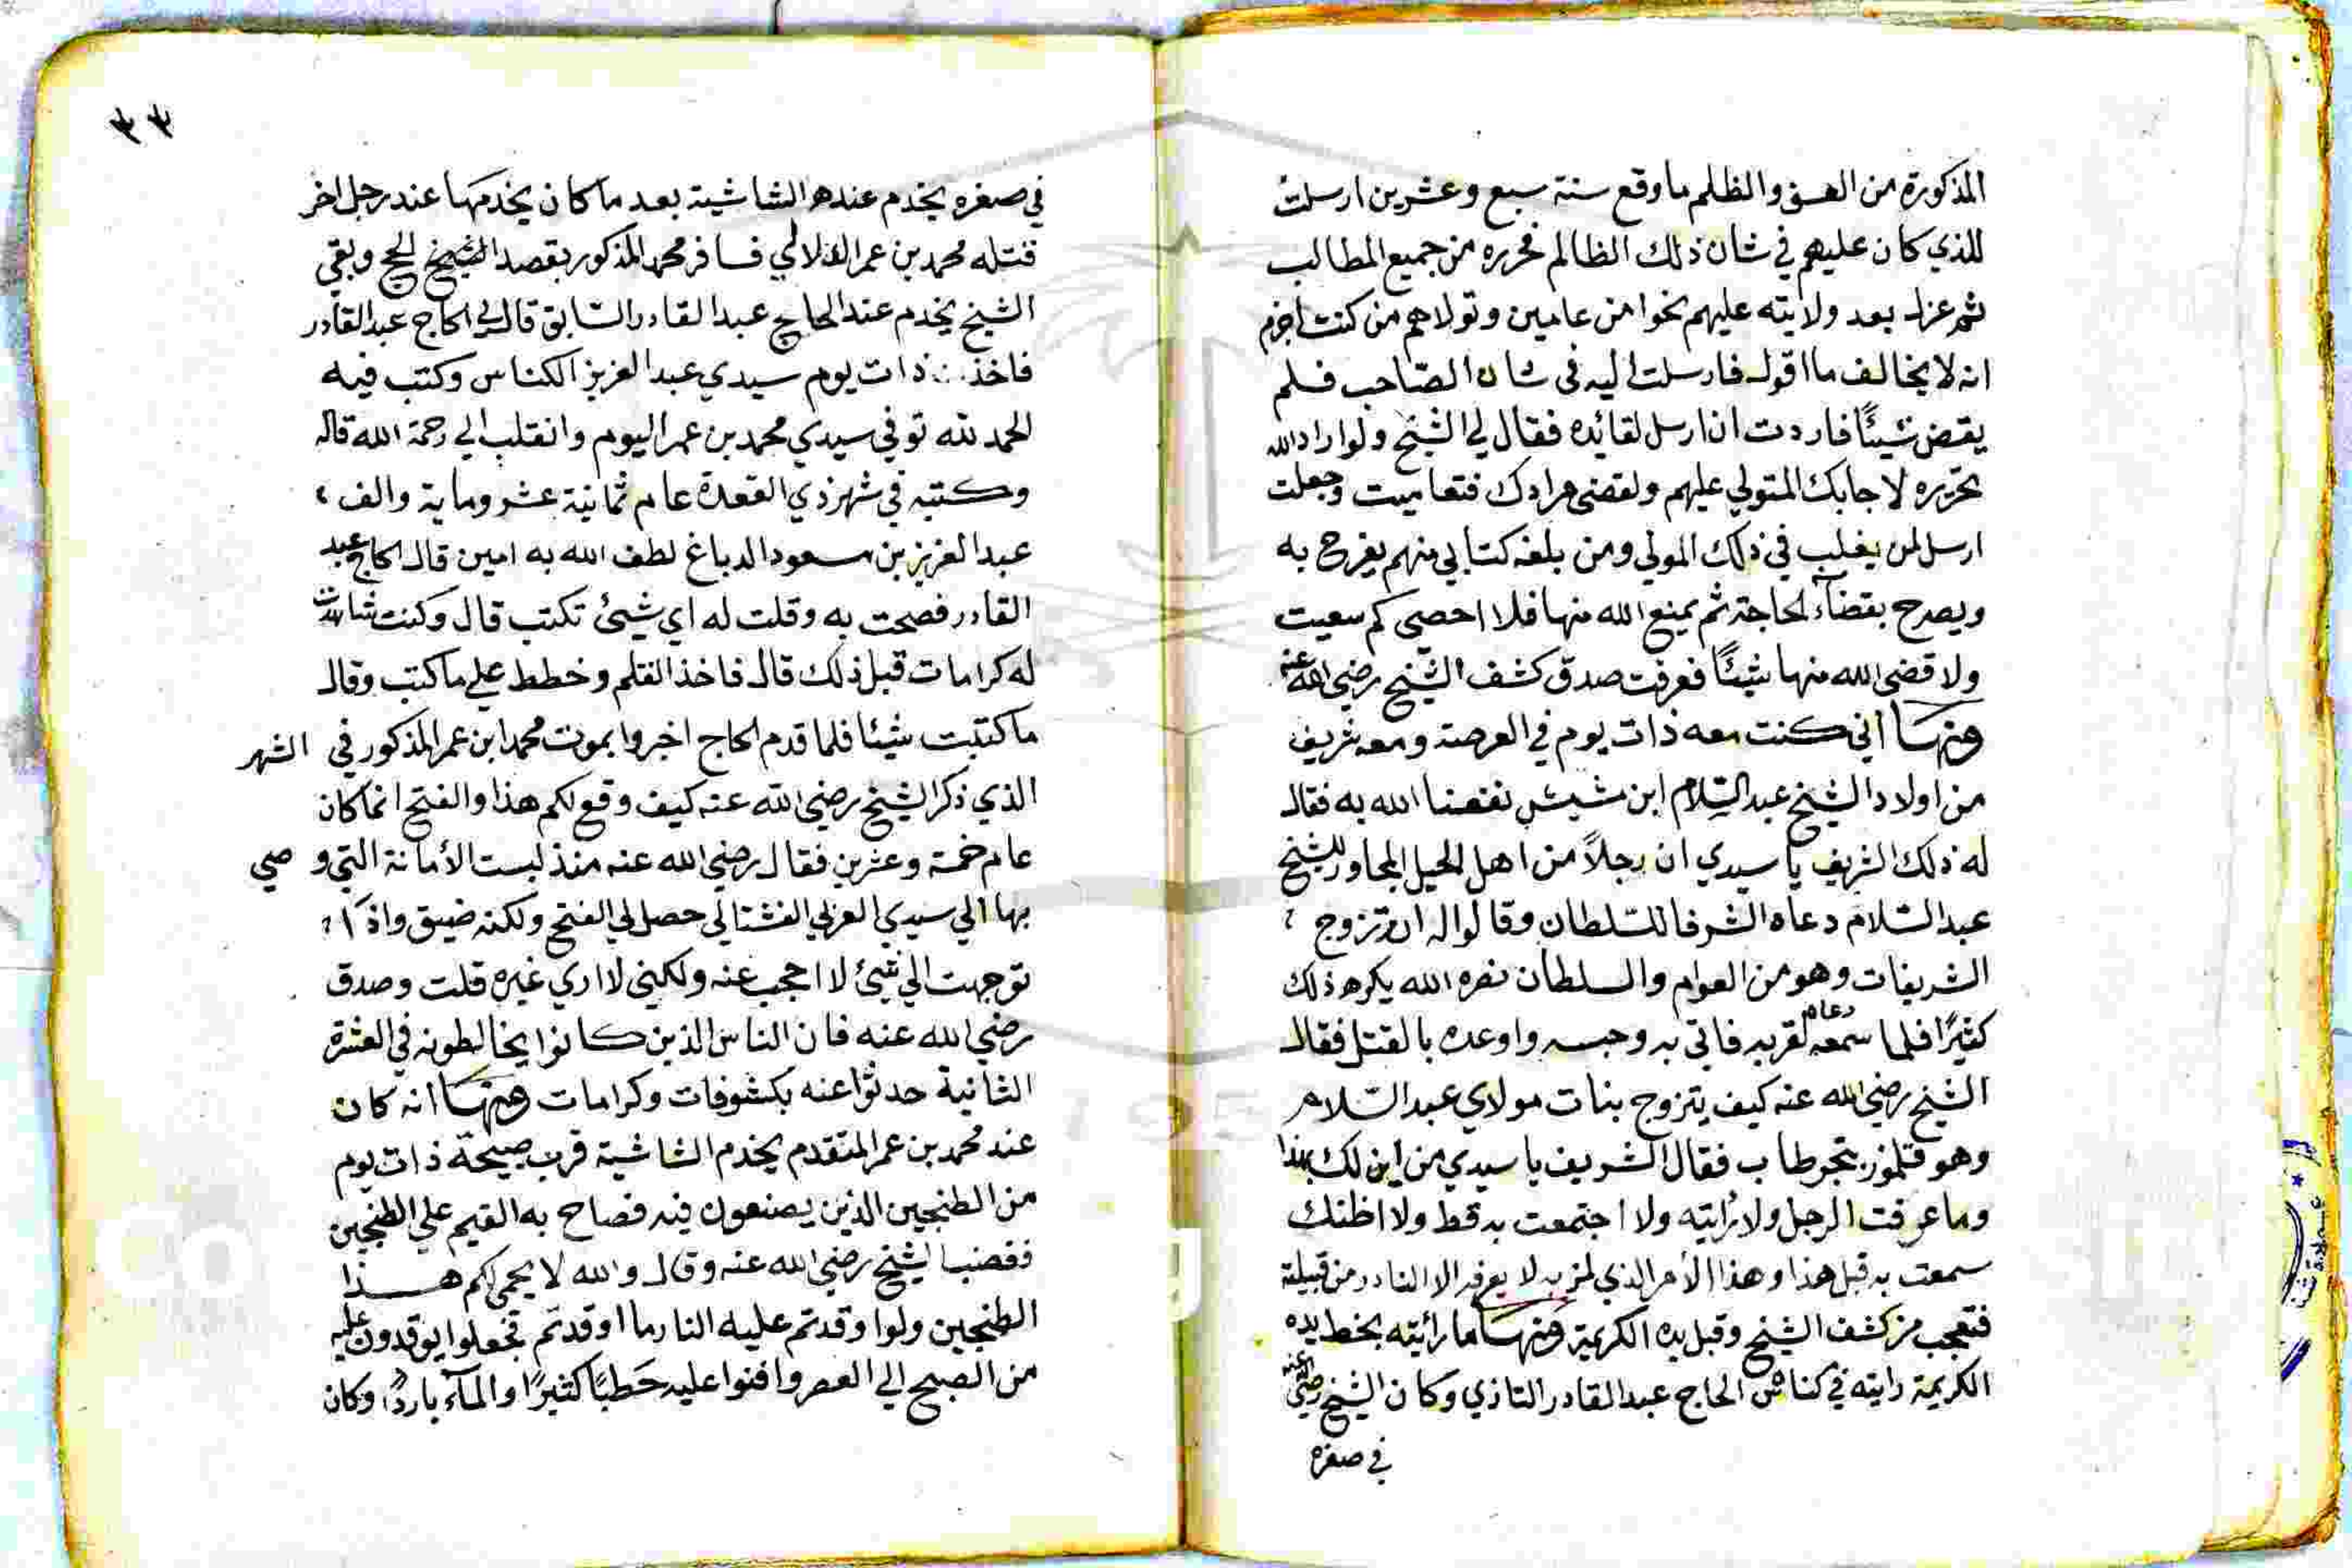 المذكورة من العسف والظلم ما وقع سنة سبع وعشرين ارسلت
للذي كان عليهم في شان ذلك الظالم فحرره من جميع المطالب
ثم عزل بعد ولايته عليهم نحوا من عامين وتولاهم من كنت اجزم
انه لا يخالف ما اقول فارسلت اليه في شان الصاحب فلم
يقض شيئًا فاردت ان ارسل لقائده فقال لي الشيخ ولو اراد الله
تحريره لاجابك المتولي عليهم ولقضى مرادك فتعاميت وجعلت
ارسل لمن يغلب في ذلك المولي ومن بلغه كتابي منهم يفرح به
ويصرح بقضآء الحاجة ثم يمنع الله منها فلا احصي كم سعيت
ولا قضى الله منها شيئًا فعرفت صدق كشف الشيخ رضي الله عنه
ومنها اني كنت معه ذات يوم في العرصة ومعه شريف
من اولاد الشيخ عبد السلام ابن مشيش نفعنا الله به فقال
له ذلك الشريف يا سيدي ان رجلاً من اهل الجبل المجاور للشيخ
عبد السلام دعاه الشرفا للسلطان وقالوا له انه تزوج
الشريفات وهو من العوام والسلطان نصره الله يكره ذلك
كثيرًا فلما سمعه دعاه لقربه فاتي به وحبسه واوعده بالقتل فقال
الشيخ رضي الله عنه كيف يتزوج بنات مولاي عبد السلام
وهو بتجرطاب فقال الشريف يا سيدي من اين لك بهذا
وما عرفت الرجل ولا رايته ولا اجتمعت به قط ولا اظنك
سمعت به قبل هذا وهذا الأمر الذي لمز به لا يعرفه الا النادر من قبيلته
فتعجب من كشف الشيخ وقبل يده الكريمة ومنها ما رائيته بخط يده
الكريمة رايته في كناش الحاج عبد القادر التازي وكان الشيخ رضي الله عنه
في صغره
٣٣
في صغره يخدم عنده الشاشية بعد ما كان يخدمها عند رجل اخر
قتله محمد بن عمر الدلالي فسافر محمد المذكور بقصد الحج وبقي
الشيخ يخدم عند الحاج عبد القادر السابق قال لي الحاج عبد القادر
فاخذ ذات يوم سيدي عبد العزيز الكناس وكتب فيه
الحمد لله توفي سيدي محمد بن عمر اليوم وانقلب الي رحمة الله قاله
وكتبه في شهر ذي القعدة عام ثمانية عشر وماية والف
عبد العزيز بن مسعود الدباغ لطف الله به امين قال الحاج عبد
القادر فصحت به وقلت له اي شيئ تكتب قال وكنت شاهدت
له كرامات قبل ذلك قال فاخذ القلم وخطط علي ما كتب وقال
ما كتبت شيئا فلما قدم الحاج اخبروا بموت محمد ابن عمر المذكور في الشهر
الذي ذكر الشيخ رضي الله عنه كيف وقع لكم هذا والفتح انما كان
عام خمسة وعشرين فقال رضي الله عنه منذ لبست الأمانة التي وصي
بها الي سيدي العربي الفشتالي حصل لي الفتح ولكنه ضيق واذا
توجهت الي شيئ لا احجب عنه ولكني لا اري غيره قلت وصدق
رضي الله عنه فان الناس الذين كانوا يخالطونه في العشرة
الثانية حدثوا عنه بكشوفات وكرامات ومنها انه كان
عند محمد بن عمر المتقدم يخدم الشاشية قرب صبيحة ذات يوم
من الطنجيين الذين يصنعون فيه فصاح به القيم علي الطنجيين
فغضب الشيخ رضي الله عنه وقال والله لا يحمي لكم هذا
الطنجيين ولو اوقدتم عليه النار ما اوقدتم فجعلوا يوقدون عليه
من الصبح الي العصر وافنوا عليه حَطبًا كثيرًا والمآء باردًا وكان